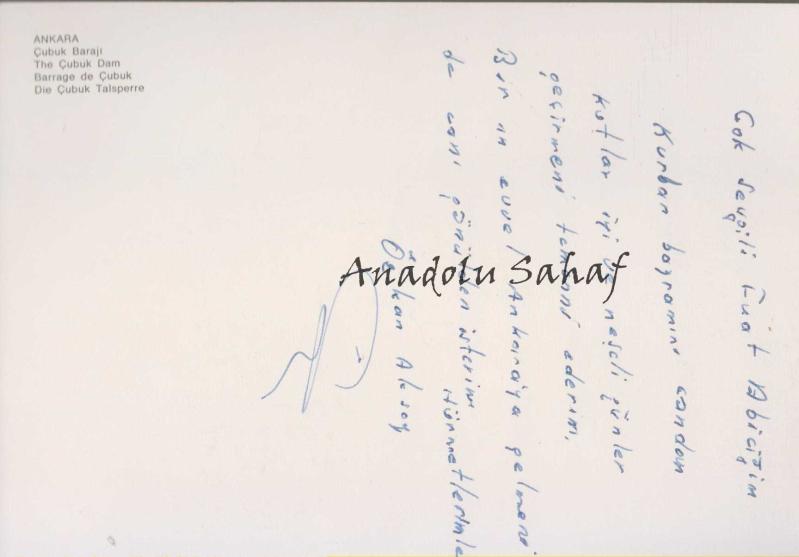 ANKARA
Çubuk Barajı
The Çubuk Dam
Barrage de Çubuk
Die Çubuk Talsperre
Çok Sevgili Fuat Abiciğim
Kurban bayramını candan
kutlar iyi ve neşeli günler
geçirmeni temenni ederim.
Bir an evvel Ankaraya gelmeni
de canı gönülden isterim
Hürmetlerimle
Özkan Aksoy
Anadolu Sahaf